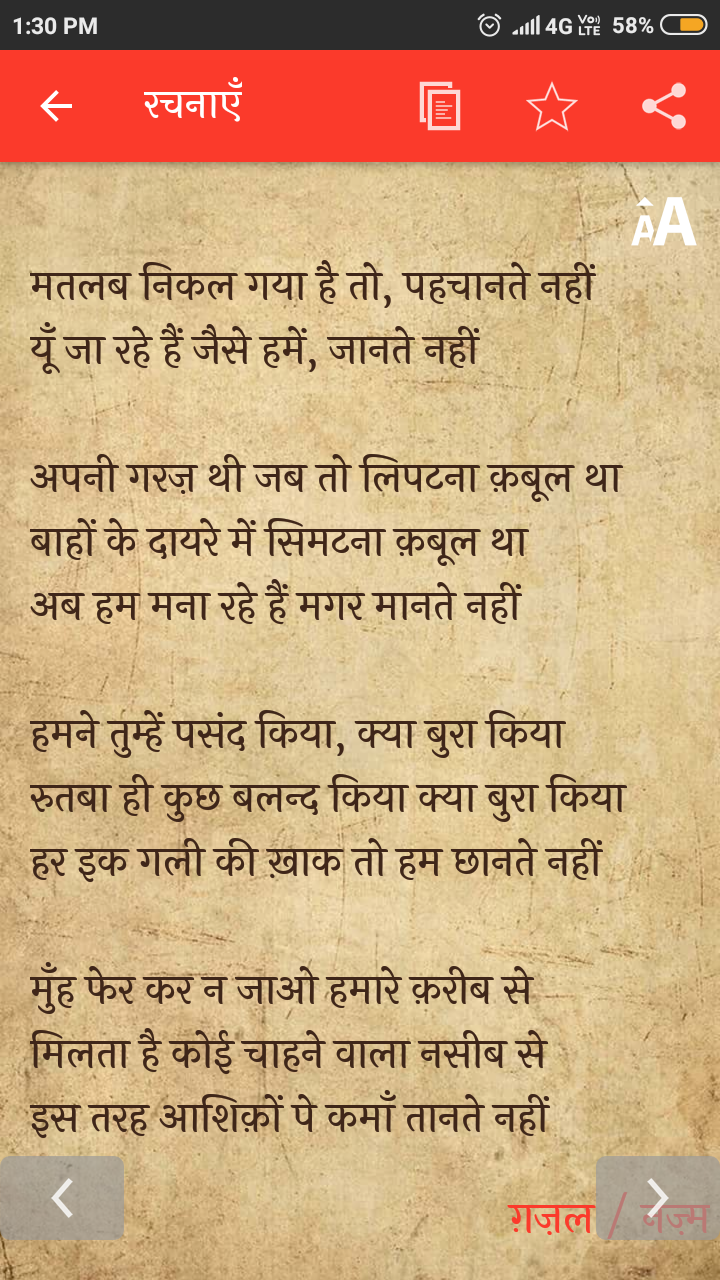 1:30 PM 4G VoLTE 58%
रचनाएँ
AA
मतलब निकल गया है तो, पहचानते नहीं
यूँ जा रहे हैं जैसे हमें, जानते नहीं
अपनी गरज़ थी जब तो लिपटना क़बूल था
बाहों के दायरे में सिमटना क़बूल था
अब हम मना रहे हैं मगर मानते नहीं
हमने तुम्हें पसंद किया, क्या बुरा किया
रुतबा ही कुछ बलन्द किया क्या बुरा किया
हर इक गली की ख़ाक तो हम छानते नहीं
मुँह फेर कर न जाओ हमारे क़रीब से
मिलता है कोई चाहने वाला नसीब से
इस तरह आशिक़ों पे कमाँ तानते नहीं
ग़ज़ल / नज़्म